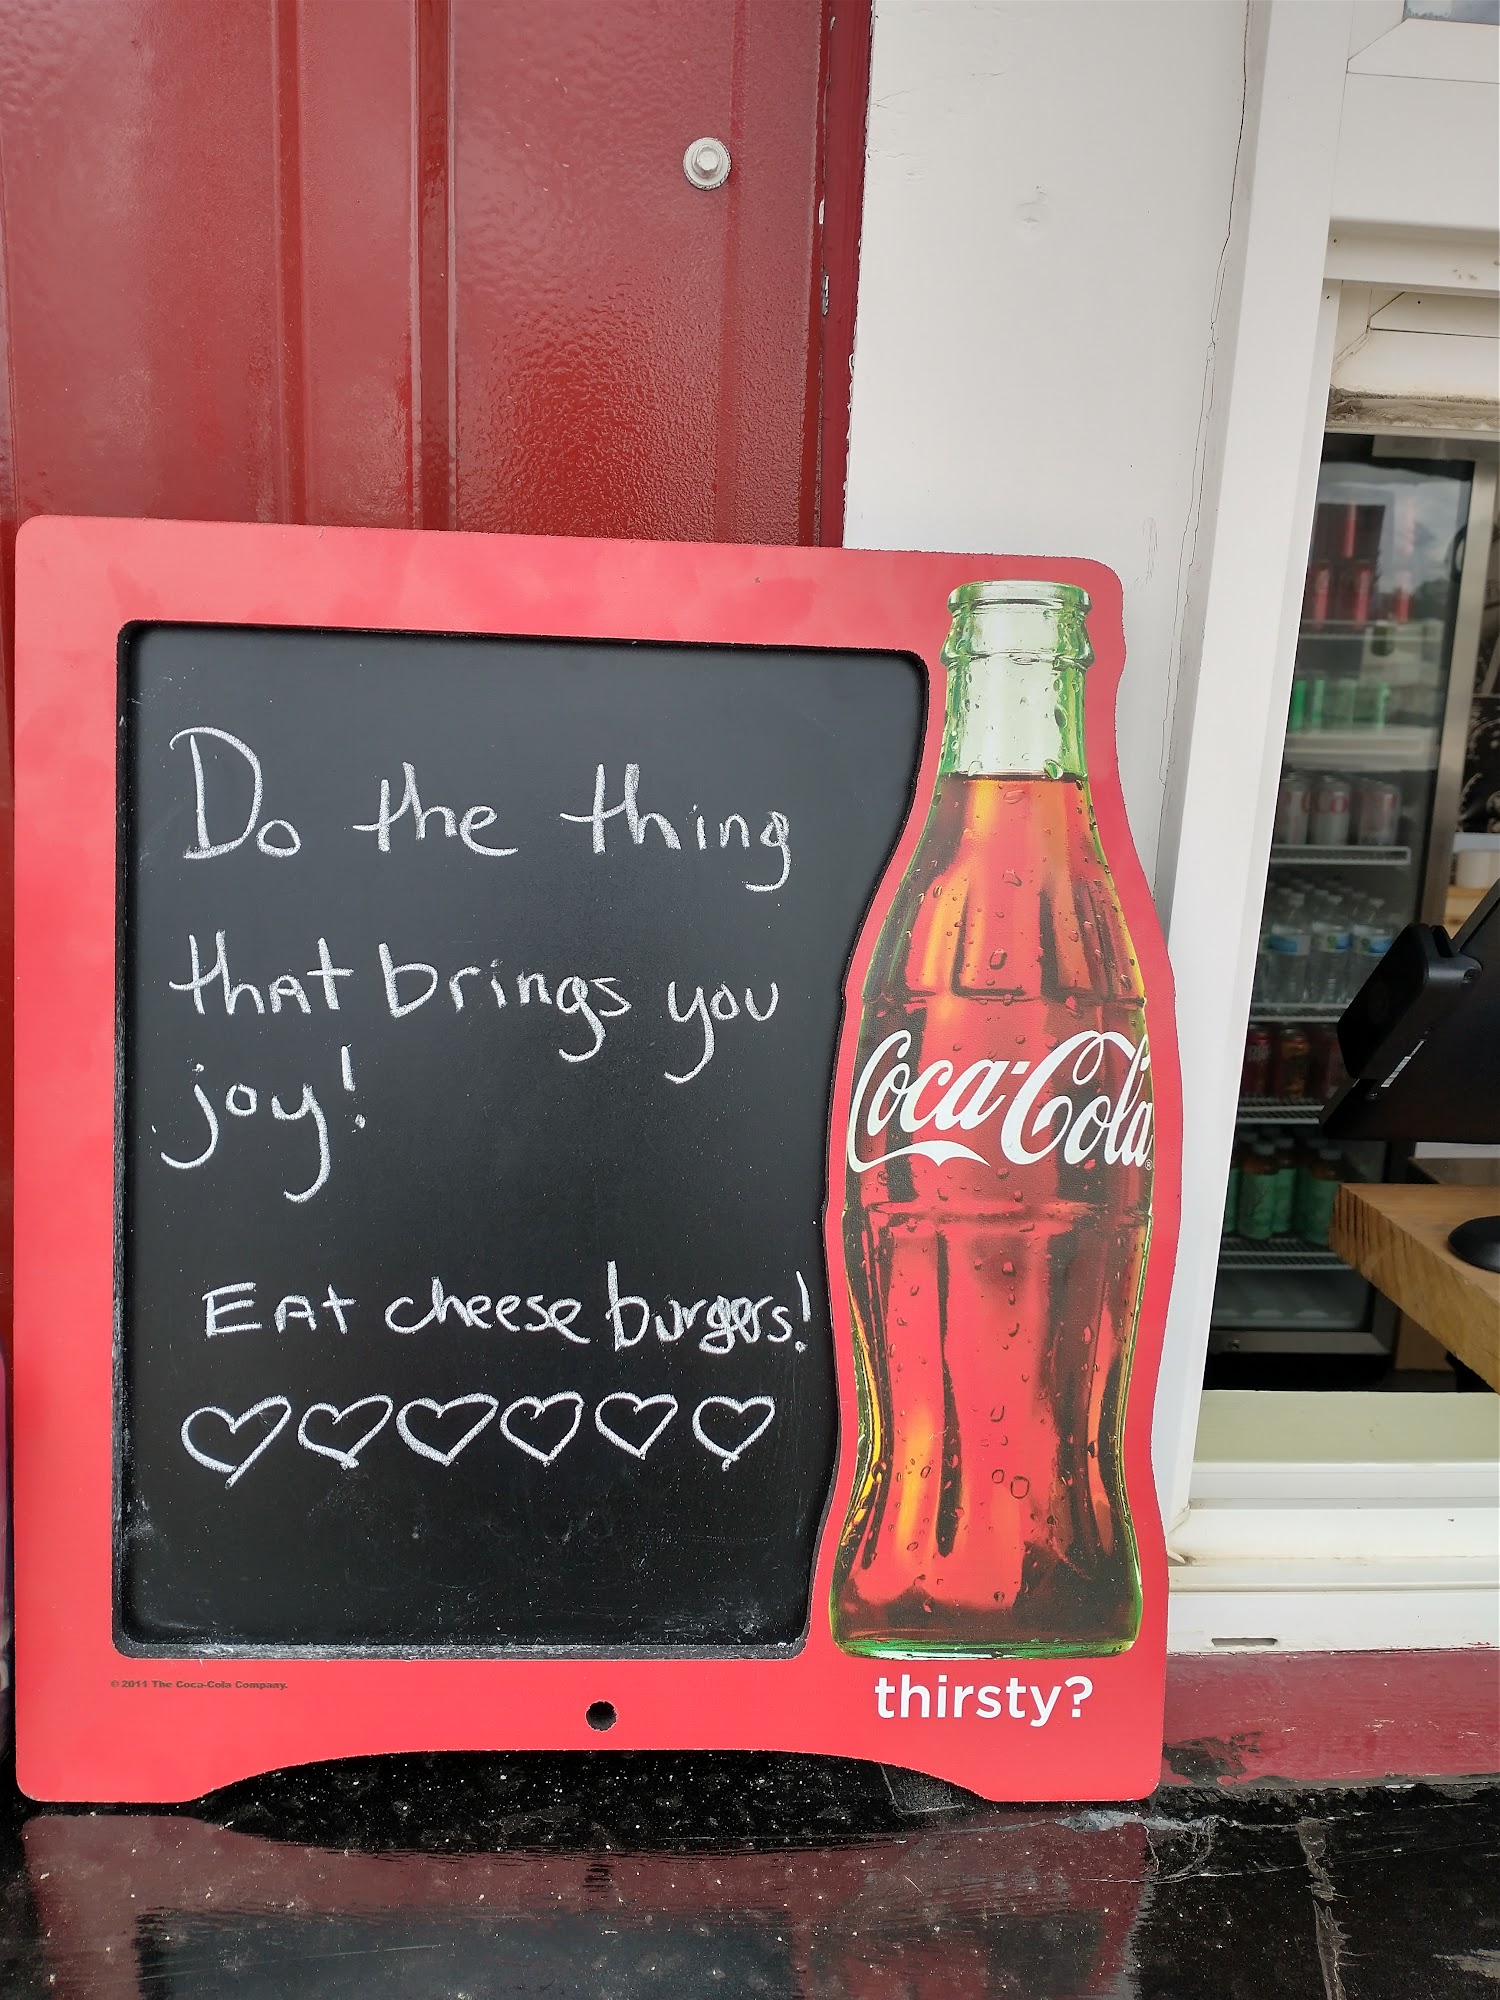 Do the thing
that brings you
joy!
EAt cheese burgers!
Coca-Cola
© 2011 The Coca-Cola Company.
thirsty?